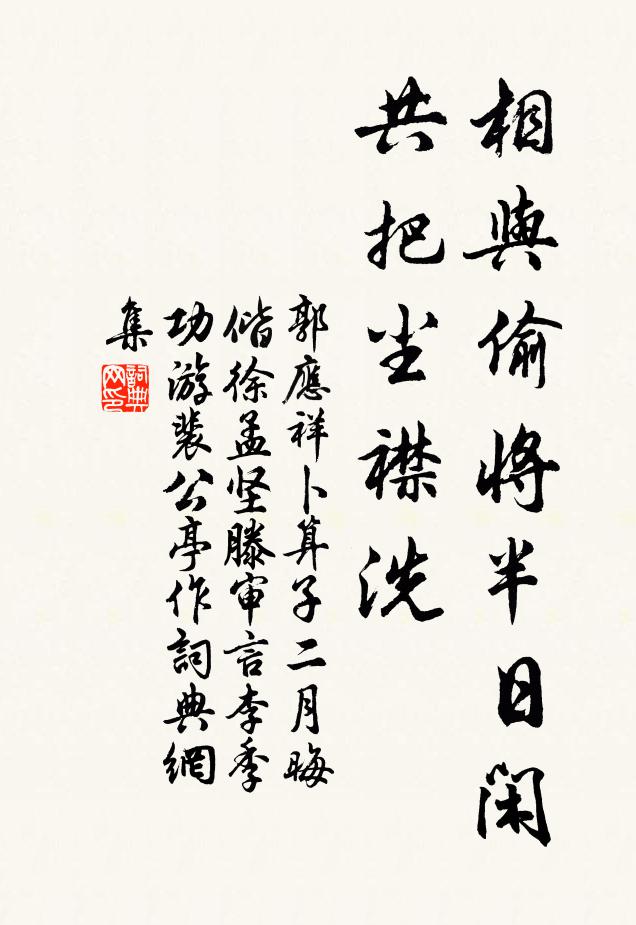 相與偷將半日閑
共把尘襟洗
郭應祥卜算子二月晦
偕徐孟坚滕审言李季
功游裴公亭作詞典網
集
詞典
网印